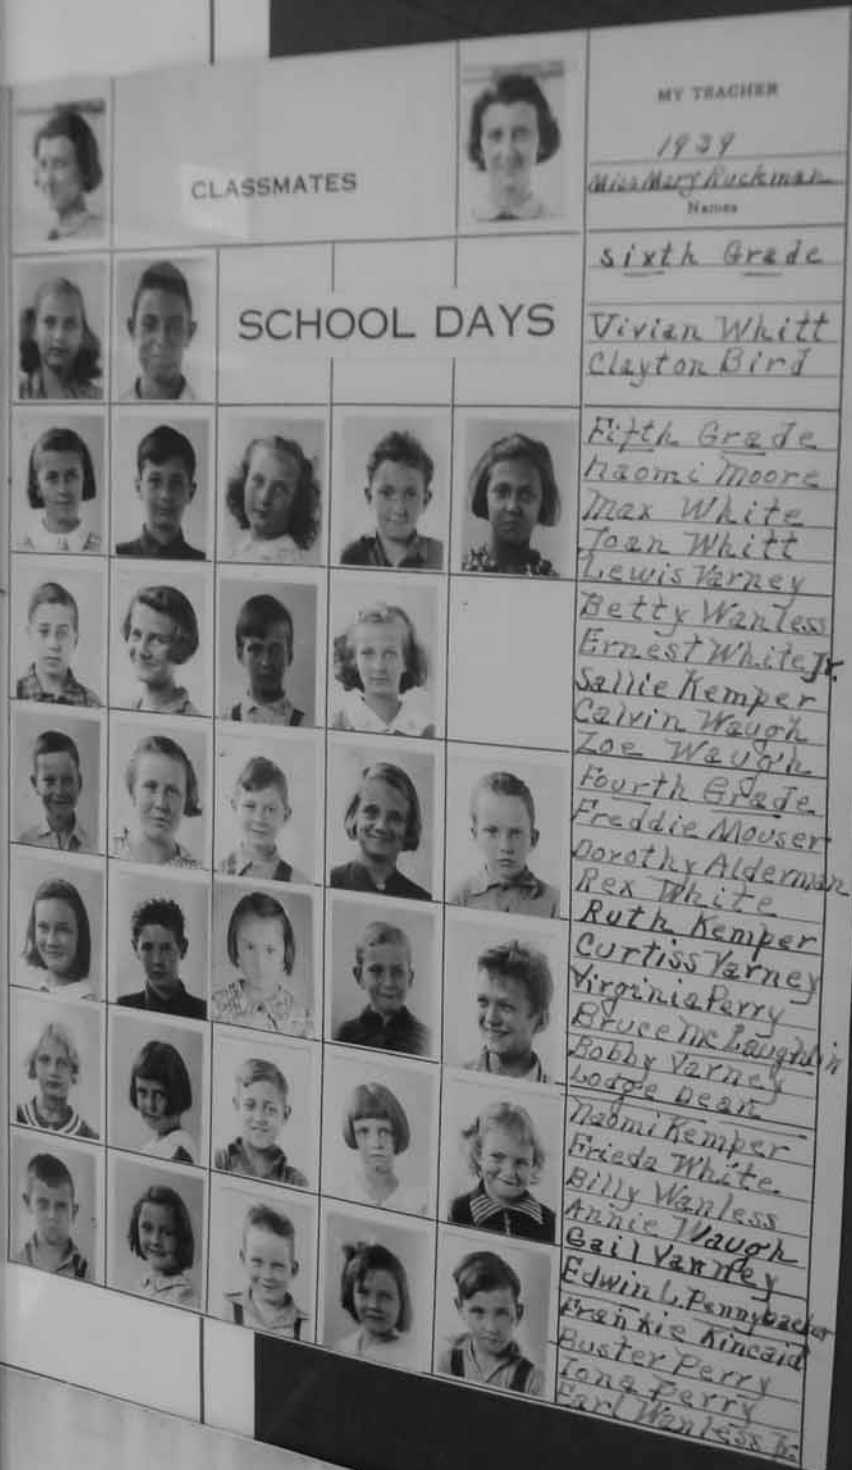 CLASSMATES
SCHOOL DAYS
MY TEACHER
1939
Miss Mary Ruckman
Names
Sixth Grade
Vivian Whitt
Clayton Bird
Fifth Grade
Naomi Moore
Max White
Joan Whitt
Lewis Varney
Betty Wanless
Ernest White Jr.
Sallie Kemper
Calvin Waugh
Zoe Waugh
Fourth Grade
Freddie Mouser
Dorothy Alderman
Rex White
Ruth Kemper
Curtiss Varney
Virginia Perry
Bruce McLaughlin
Bobby Varney
Lodge Dean
Naomi Kemper
Frieda White
Billy Wanless
Annie Waugh
Gail Varney
Edwin L. Pennybacker
Frankie Kincaid
Buster Perry
Iona Perry
Earl Wanless Jr.